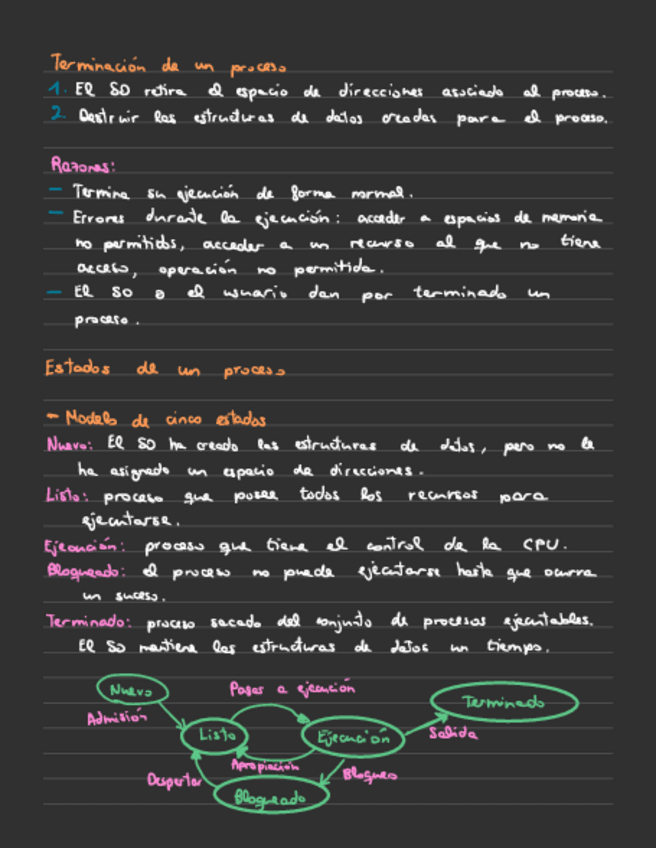 Terminación de un proceso
1. El SO retira el espacio de direcciones asociado al proceso.
2. Destruir las estructuras de datos creadas para el proceso.
Razones:
- Termina su ejecución de forma normal.
- Errores durante la ejecución: acceder a espacios de memoria
no permitidos, acceder a un recurso al que no tiene
acceso, operación no permitida.
- El SO o el usuario dan por terminado un
proceso.
Estados de un proceso
- Modelo de cinco estados
Nuevo: El SO ha creado las estructuras de datos, pero no le
ha asignado un espacio de direcciones.
Listo: proceso que posee todos los recursos para
ejecutarse.
Ejecución: proceso que tiene el control de la CPU.
Bloqueado: el proceso no puede ejecutarse hasta que ocurra
un suceso.
Terminado: proceso sacado del conjunto de procesos ejecutables.
El SO mantiene las estructuras de datos un tiempo.
Nuevo
Pasar a ejecución
Terminado
Admisión
Listo
Ejecución
Salida
Apropiación
Despertar
Bloqueo
Bloqueado